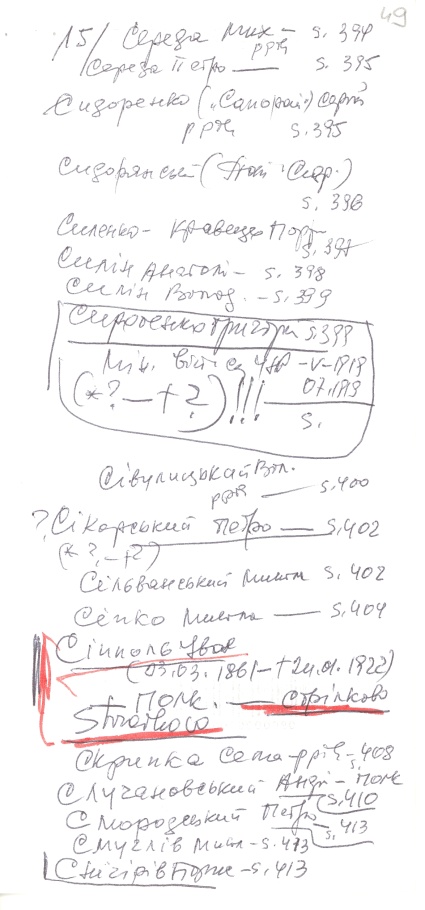 49
15/ Середа Мих - s. 394
ррч
Середа Петро — s. 395
Сидоренко („Сапорай") Сергій
ррч s. 395
Сидорянський ( Сидр.)
s. 396
Силенко - Кравець Порф
s. 397
Силін Анатолі - s. 398
Силін Волод. - s. 399
Сиротенко Григорій s. 399
Мін. військ УНР -V-1919
07.1919
(*? — +?) !!!
s.
Сівулицький Вол.
ррч — s. 400
? Сікорський Петро — s. 402
(* ?, - +?)
Сільванський Микола s. 402
Сіпко Микола — s. 404
Сіпполь Іван
(03.03. 1861 - + 24.01. 1922)
Полк. — Стрілково
Strzałkowo
Скрипка Сема - ррч - s. 408
Случановський Андрі - Полк
s. 410
Смородський Петро
s. 413
Смуглів Микол - s. 413
Снігірів - s. 413